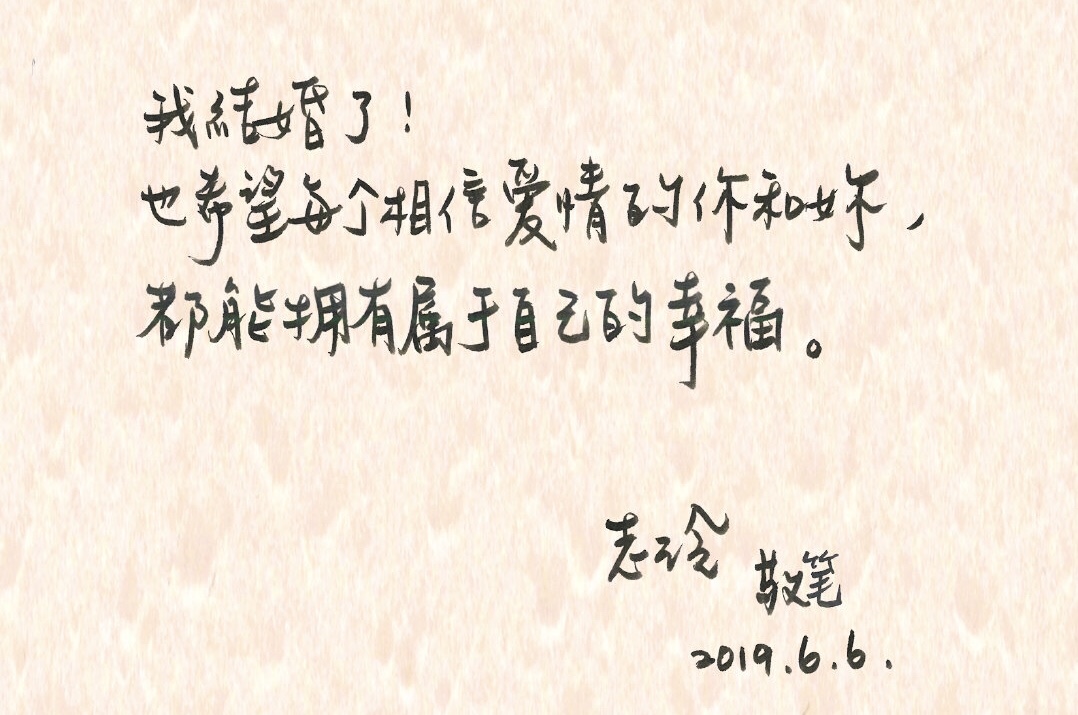 我結婚了!
也希望每个相信爱情的你和妳,
都能拥有属于自己的幸福。
志玲 敬笔
2019.6.6.